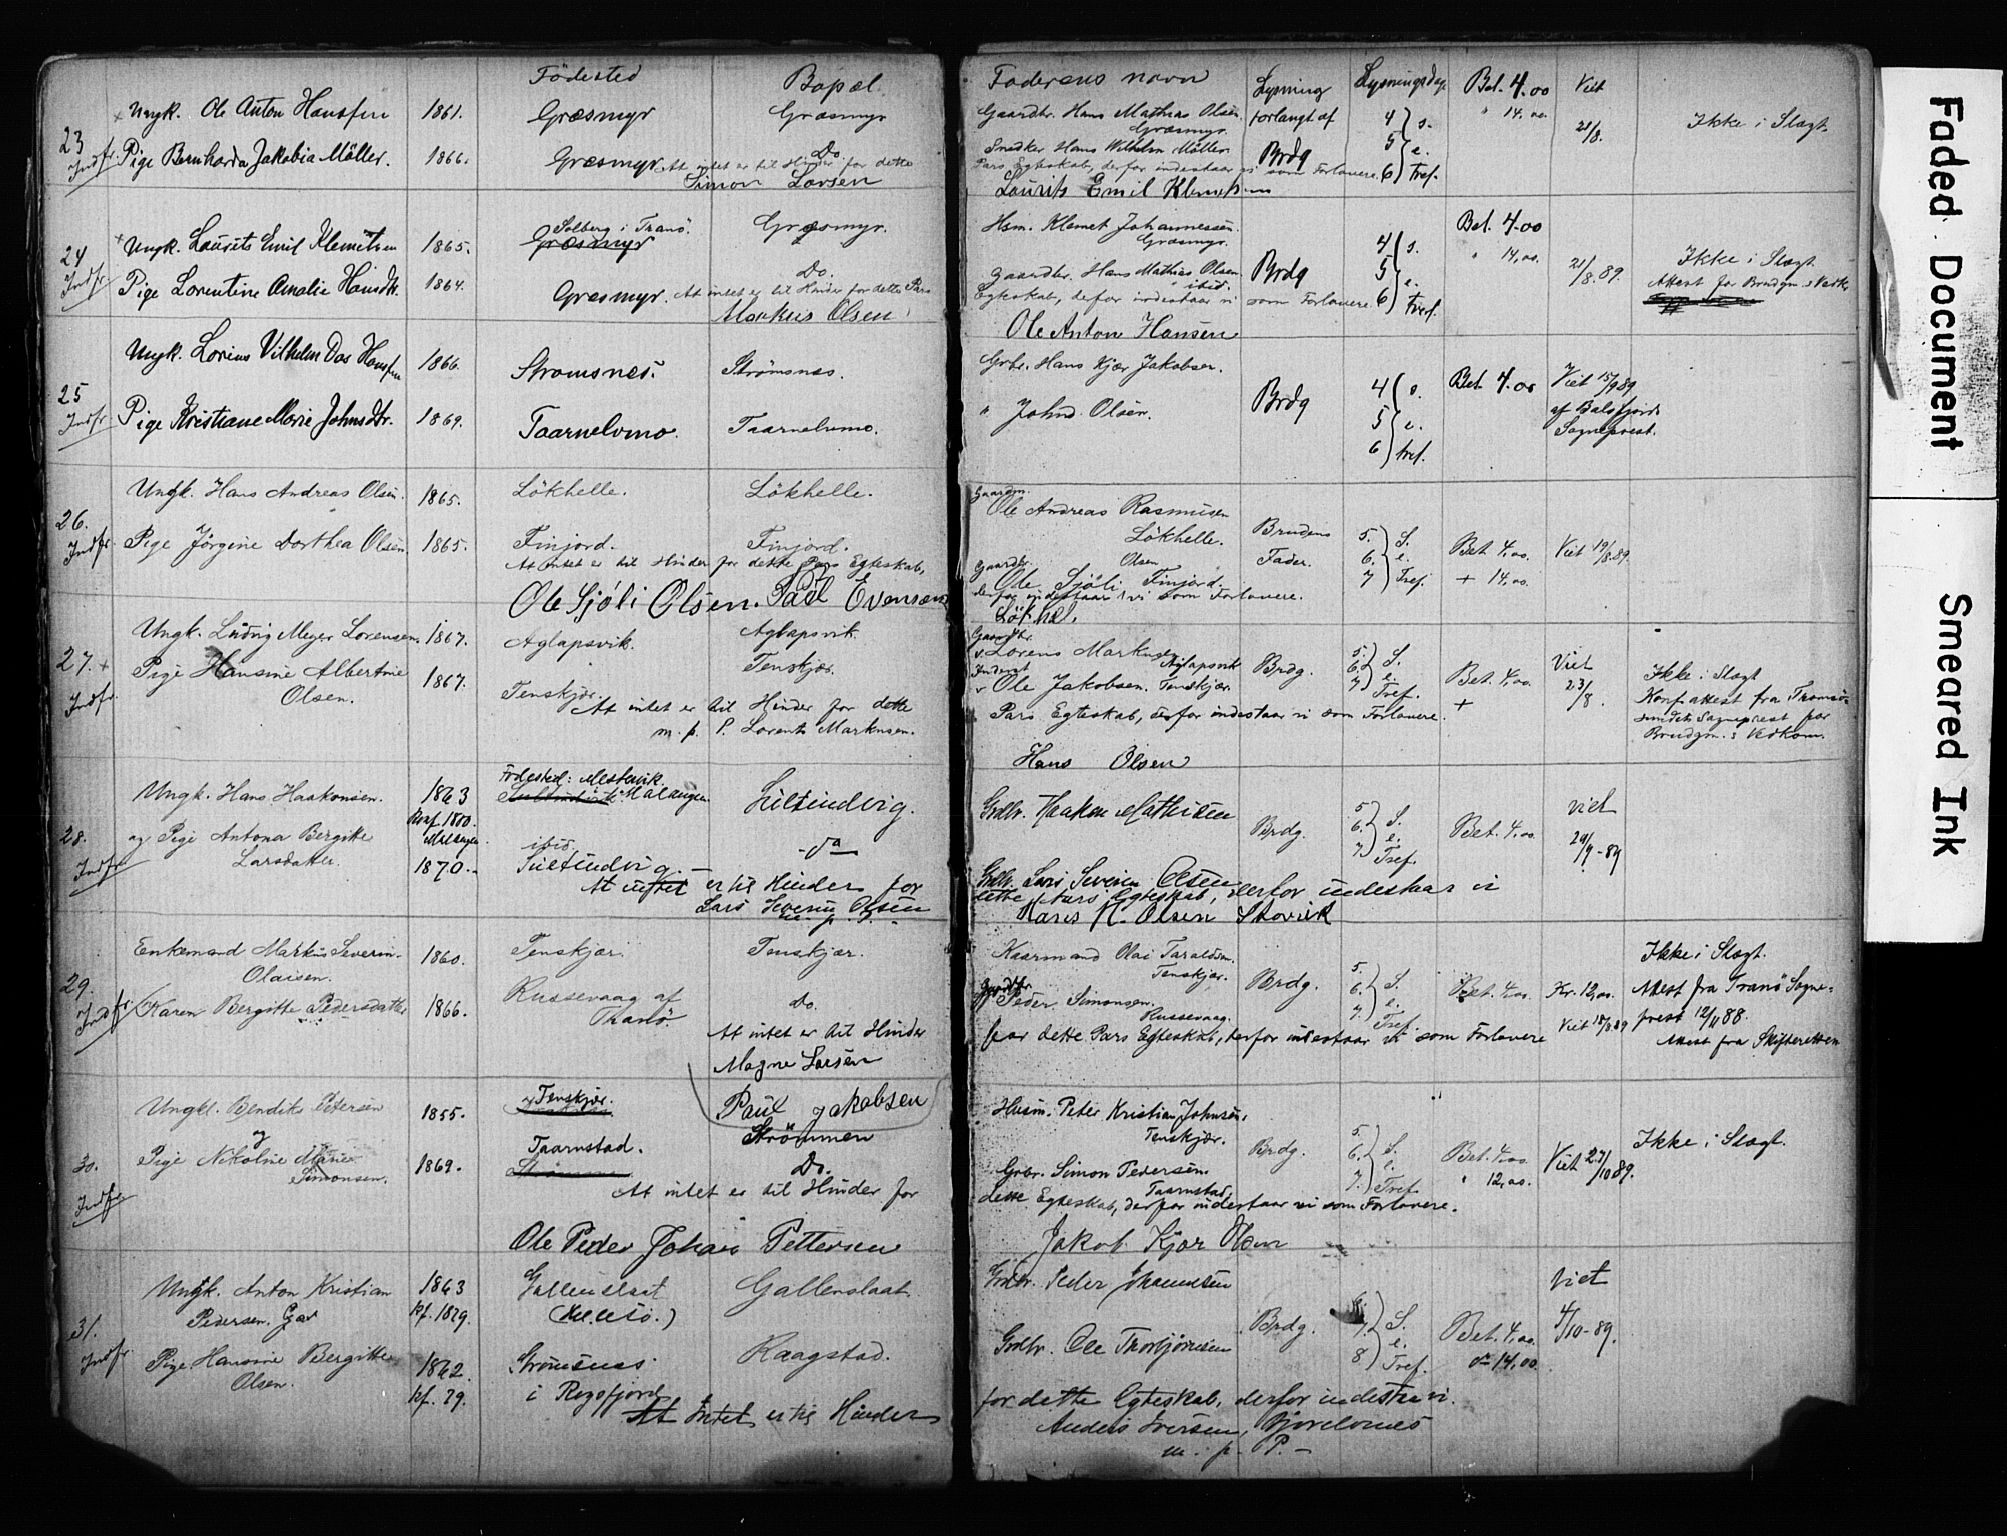 Födested Bopæl Faderens navn Lysning Lysningsdag Bet. 4.00 Viet
23 Ungk. Ole Anton Hanssen 1861. Græsmyr Græsmyr Gaardbr. Hans Mathias Olsen. forlangt af 4 s. " 14,00 21/8. Ikke i Slægt.
Græsmyr.
Indfr. Pige Bernharda Jakobia Möller. 1866. Græsmyr Do. Snedker Hans Wilhelm Möller. Brdg 5 e.
At intet er til Hinder for dette Pars Egteskab, derfor indestaar vi som Forlovere. 6 Tref.
Simon Larsen Laurits Emil Klemetsen
24 Ungk. Laurits Emil Klemetsen 1865. Solberg i Tranö. Græsmyr Græsmyr. Hsm. Klemet Johannessen. Bet. 4.00
Græsmyr. 4 s. " 14,00. Ikke i Slægt.
Indfr. Pige Lorentine Amalie Hansdtr. 1864. Græsmyr. Do. Gaardbr. Hans Mathias Olsen. ibid. Brdg 5 e. 21/8 89. Attest for Brudgm.s Vedk.
At intet er til Hinder for dette Pars Egteskab, derfor indestaar vi som Forlovere. 6 Tref.
Markus Olsen Ole Anton Hansen
25 Ungk. Lorius Vilhelm Das Hanssen 1866. Strømsnes. Strømsnes. Grbr. Hans Kjær Jakobsen. Brdg 4 s. Bet. 4.00 Viet 15/9 89
Indfr. Pige Kristiane Marie Johnsdtr. 1869. Taarnelvmo. Taarnelvmo. " John Olsen. 5 e. af Balsfjords
6 Tref. Sogneprest.
26. Ungk. Hans Andreas Olsen. 1865. Lökhelle. Lökhelle. Gaardm. Ole Andreas Rasmusen
Lökhelle. Brudens 5. S.
Indfr. Pige Jörgine Dorthea Olsen. 1865. Finjord. Finjord. Gaardbr. Ole Sjöli Olsen Finjord. Fader. 6. e. Bet 4,00. Viet 19/8.89.
7 Tref. + 14,00.
At intet er til Hinder for dette Pars Egteskab, derfor indestaar vi som Forlovere.
Ole Sjöli Olsen. Paul Evensen Lökhel.
27. Ungk. Ludvig Meyer Lorensen. 1867. Aglapsvik. Aglapsvik. Gaardbr. Lorens Markusen Aglapsvik Brdg. 5. S. Viet
Indfr. Pige Hansine Albertine Olsen. 1867. Tenskjær. Tenskjær. Inderst Ole Jakobsen. Tenskjær. 6. e. Bet. 4,00. 23/8. Ikke i Slægt
7 Tref. + Konf.attest fra Tromsö-
At intet er til Hinder for dette Pars Egteskab, derfor indestaar vi som Forlovere. sundets Sogneprest for
m. p. P. Lorents Markusen. Brudgm.s Vedkom.
Hans Olsen
28. Ungk. Hans Haakonsen. 1863 Födested: Mestervik. Malangen. Sultindvig. Grdbr. Haakon Mathisen Brdg. 5. S. Bet. 4,00. Viet
Konf. 1880. Malangen. 6. e. 29/9-89
Indfr. og Pige Antona Bergitte Larsdatter. 1870. ibid. Sultindvig. do Grdbr. Lars Severin Olsen 7. Tref.
At intet er til Hinder for dette Pars Egteskab, derfor indestaar vi
Lars Severin Olsen m. p. Hans N. Olsen Storvik
29. Enkemand Markus Severin Olaisen. 1860. Tenskjær. Tenskjær. Kaarmand Olai Taraldsen. Ikke i Slægt.
Tenskjær. Brdg. 5. S. Bet. 4,00. Kr. 12,00. Attest fra Tranö Sogne-
Indfr. Karen Bergitte Pedersdatter 1866. Russevaag af Tranö. Do. Gaardbr. Peder Simonsen. 6. e. prest 12/11 88.
Russevaag. 7. Tref. Viet 18/8.89 Attest fra Skifteretten
At intet er til Hinder for dette Pars Egteskab, derfor indestaar vi som Forlovere
Magne Larsen
Paul Jakobsen
30. Ungkl. Bendik Petersen 1855. Tenskjær. Strömmen Husm. Peter Kristian Johnsen,
Tenskjær. Brdg. 5. S. Ikke i Slægt.
Indfr. og Pige Nikoline Marie Simonsen. 1869. Taarnstad. Do. Grbr. Simon Pedersen 6. e. Bet. 4,00. Viet 27/10 89.
Taarnstad, 7. Tref. " 12,00.
At intet er til Hinder for dette Egteskab, derfor indestaar vi som Forlovere.
Ole Peder Johan Pettersen Jakob Kjær Olsen
31. Ungk. Anton Kristian Pedersen. 1863 Gallenslaat Gallenslaat. Grdbr. Peder Viet
kf. 1879. 6. S. 4/10-89.
Indfr. Pige Hansine Bergitte Olsen. 1862. Strømsnes Kaagstad. Grdbr. Ole Thorbjörnsen Brdg. 7. e. Bet. 4,00.
kf. 79. i Rossfjord 8 Tref. do 14,00.
At Intet er til Hinder for dette Egteskab, derfor indestaa vi.
Anders Iversen, Bjorelvnes
m. p. P. -
Faded Document
Smeared Ink